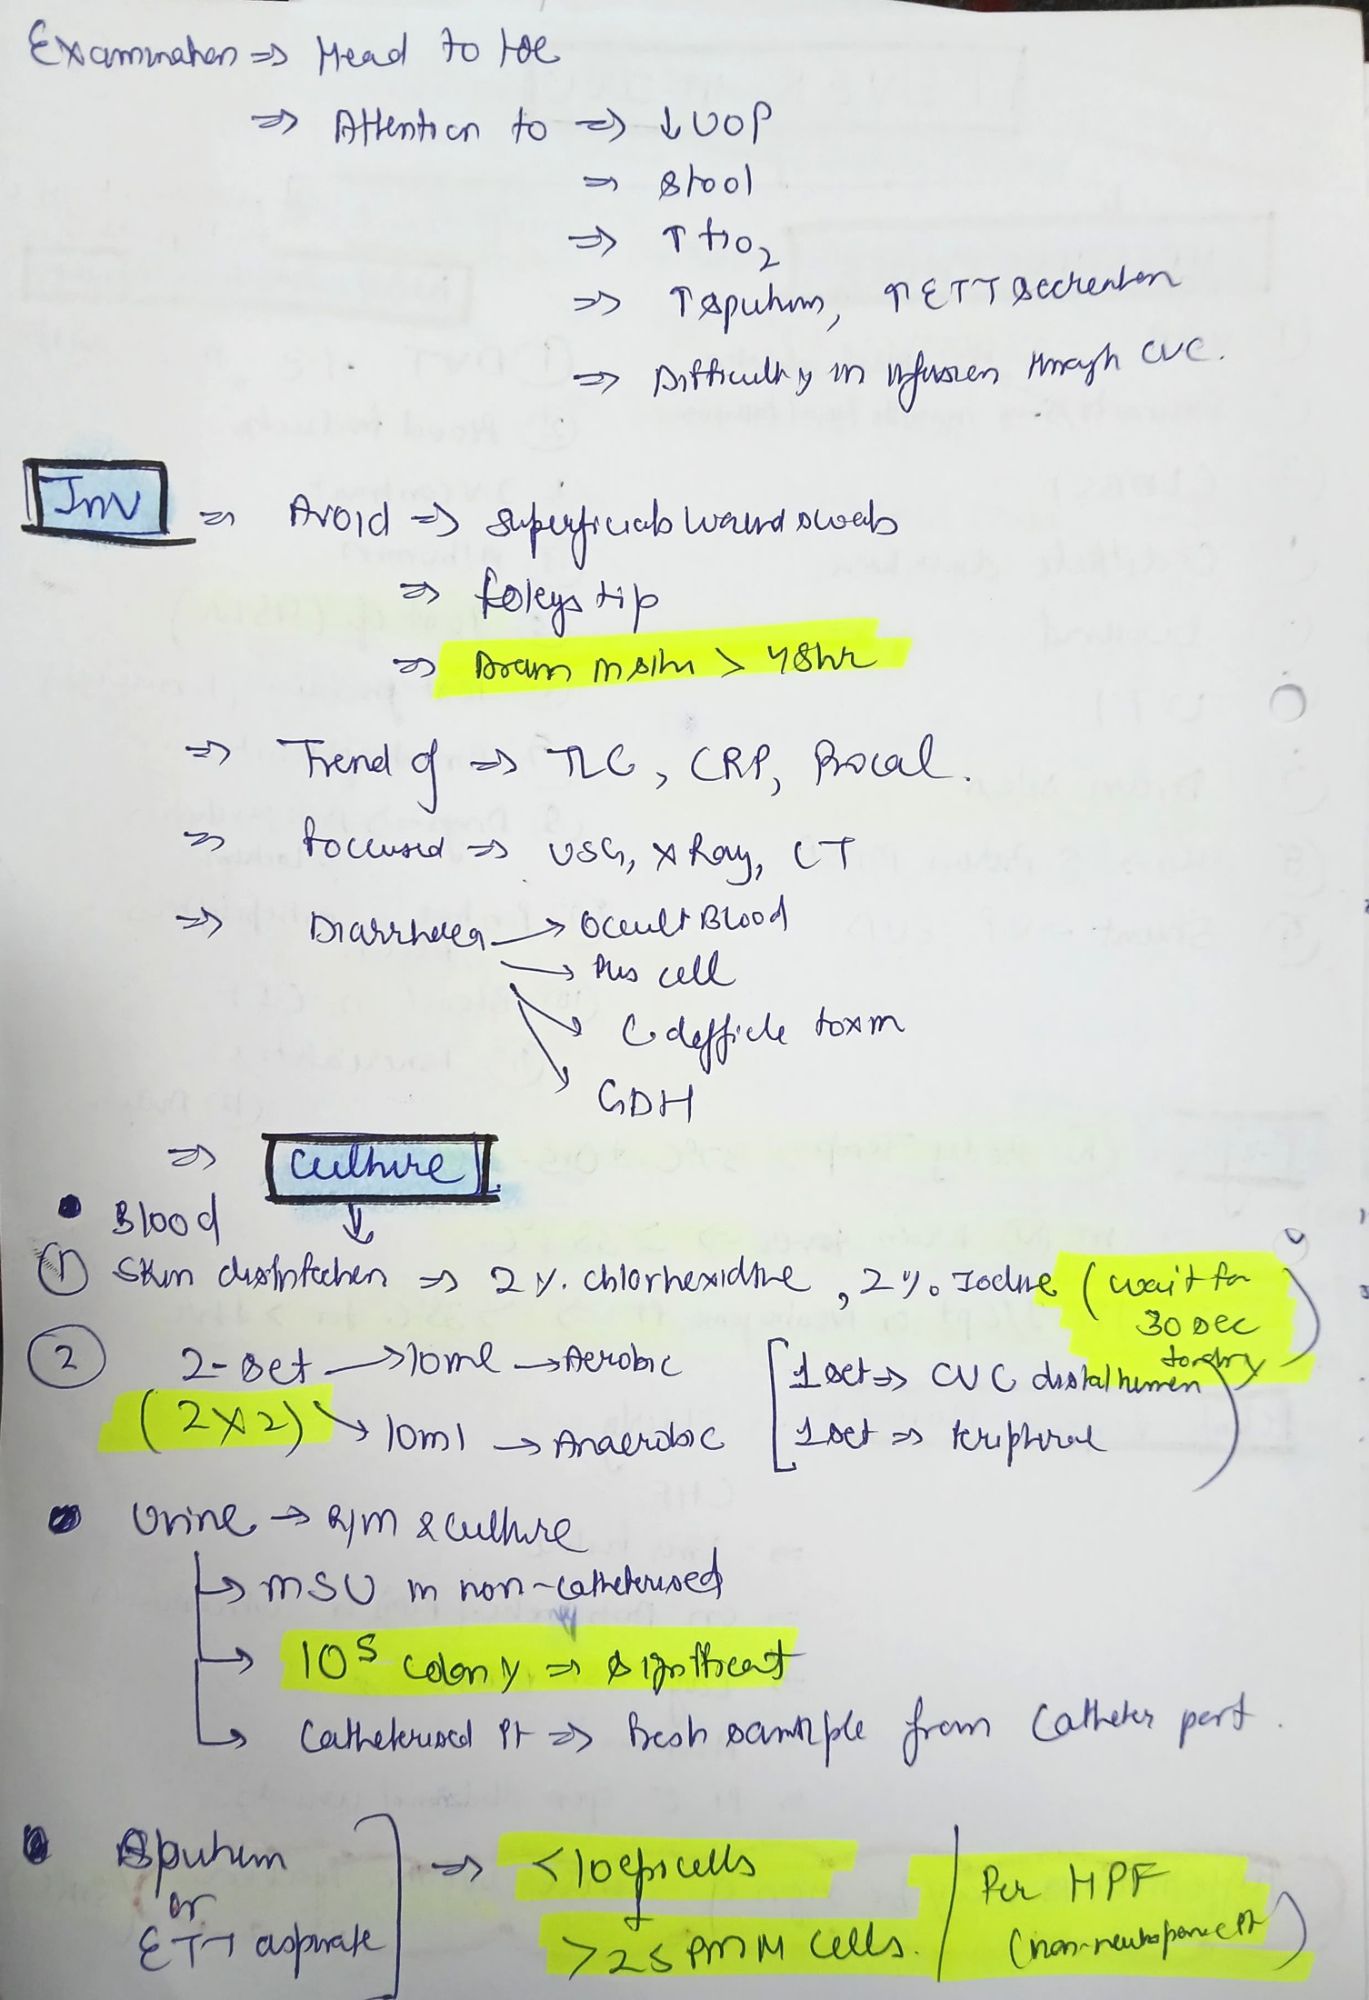 Examination ⇒ Head to toe
⇒ Attention to ⇒ ↓ UOP
⇒ stool
⇒ ↑ fio₂
⇒ ↑ sputum, ↑ ETT secreation
⇒ Difficulty in infusion through CVC.
Inv ⇒ Avoid ⇒ superficial wound swab
⇒ foleys tip
⇒ Drain insitu > 48hr
⇒ Trend of ⇒ TLC, CRP, Procal.
⇒ focused ⇒ USG, X Ray, CT
⇒ Diarrhoea → Occult Blood
→ Pus cell
→ C defficle toxin
→ GDH
⇒ Culture
• Blood ↓
① Skin disinfection ⇒ 2% chlorhexidine, 2% Iodine (wait for
30 sec
to dry)
② 2-set → 10ml → Aerobic [1 set ⇒ CVC distal lumen
(2x2) → 10ml → Anaerobic [1 set ⇒ Peripheral)
• Urine → R/M & culture
→ MSU in non-catheterised
→ 10⁵ colony ⇒ significant
→ Catheterised Pt ⇒ Fresh sample from Catheter port.
• Sputum ⇒ <10 epi cells | Per HPF
or
ETT aspirate] >25 PMN cells. | (non-neutropenic Pt)